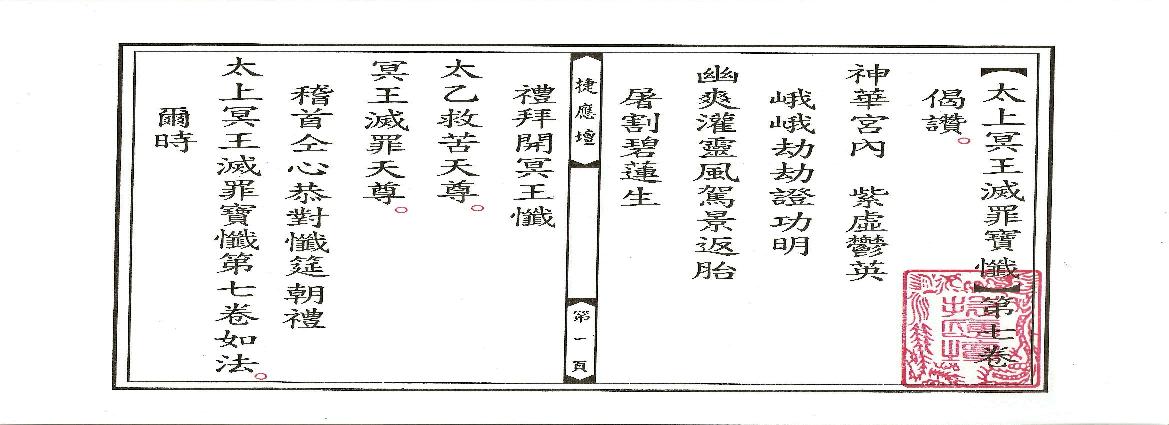 【太上冥王滅罪寶懺】第七卷
偈讚。
神華宮內　紫虛鬱英
峨峨劫劫證功明
幽爽灌靈風駕景返胎
屠割碧蓮生
捷應壇
第一頁
禮拜開冥王懺
太乙救苦天尊。
冥王滅罪天尊。
稽首仝心恭對懺筵朝禮
太上冥王滅罪寶懺第七卷如法。
爾時